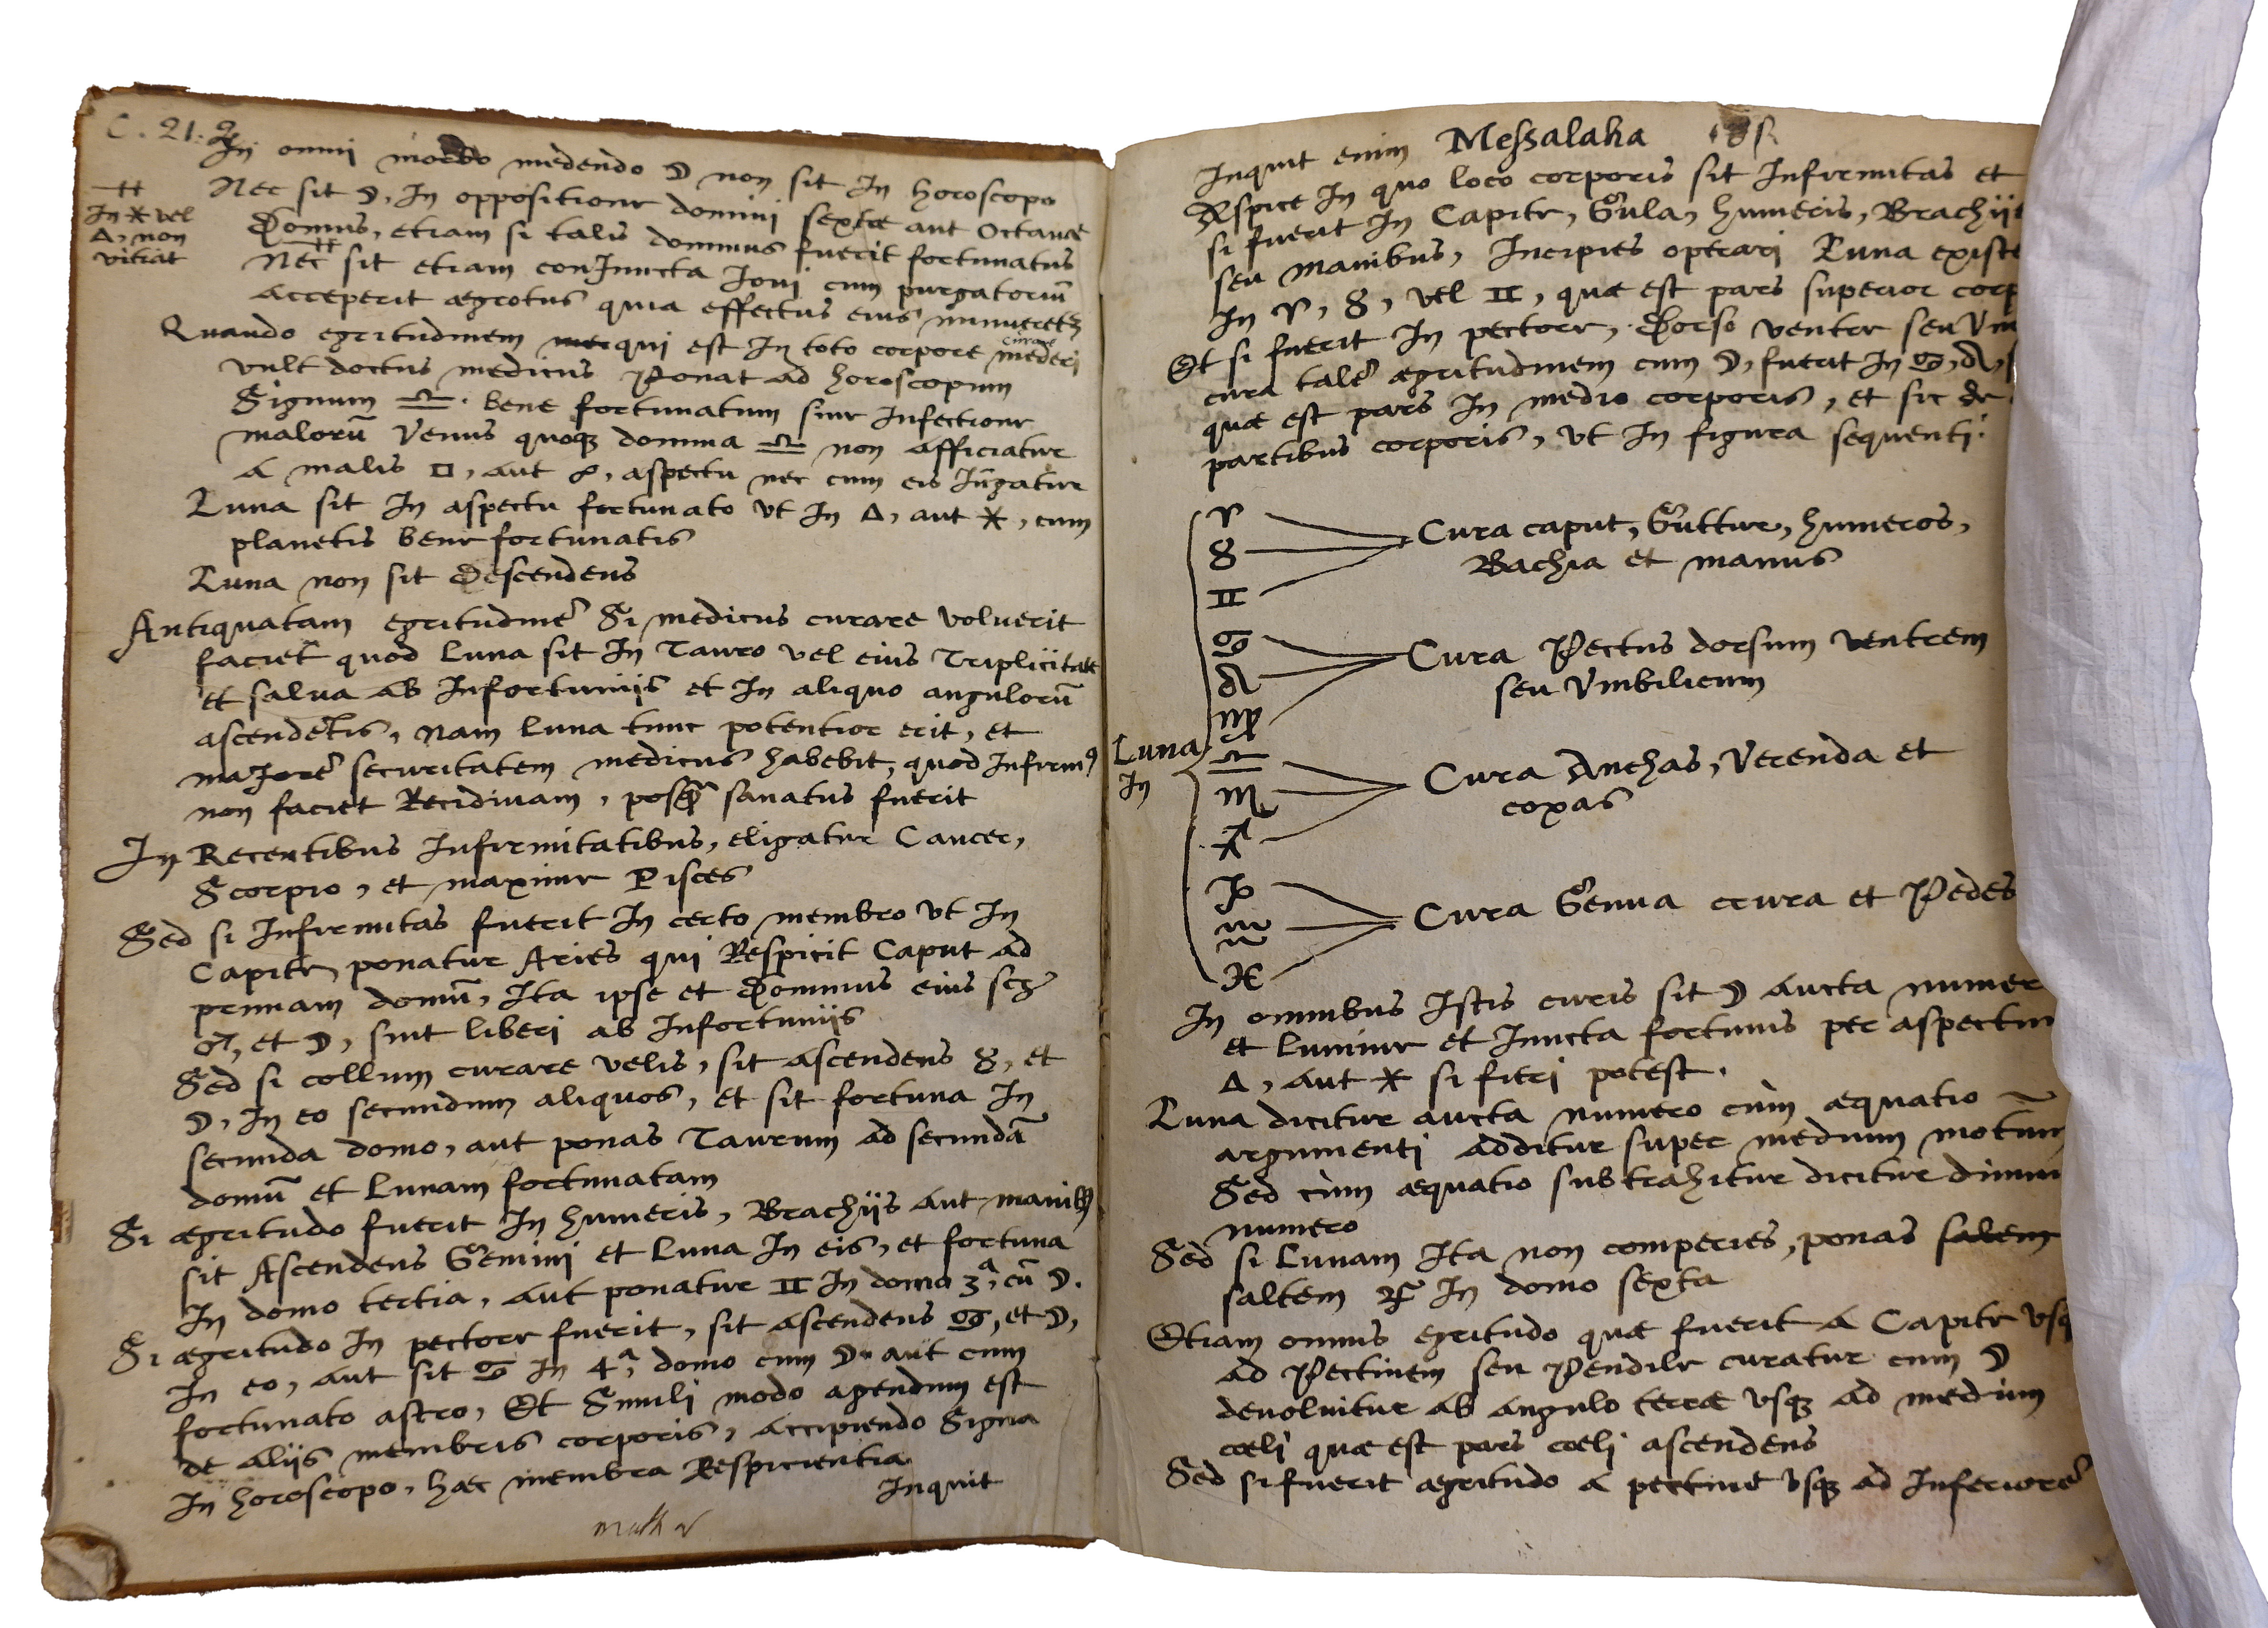 C. 21. 2
In omni morbo medendo ☽ non sit In horoscopo
Nec sit ☽, In oppositione domini sextæ aut Octauæ
In ⚹ vel
△, non
vitiat
Domus, etiam si talis dominus fuerit fortunatus
Nec sit etiam conIuncta Ioui cum purgatoriū
Acceperit ægrotus quia effectus eius minueretꝫ
Quando egritudinem qui est In toto corpore mederi
curare
vult doctus medicus Ponat ad horoscopum
Signum ♎. bene fortunatum sine Infectione
malorū Venus quoqꝫ domina ♎ non afficiatur
A malis □, aut ☍, aspectu nec cum eis Iūgatur
Luna sit In aspectu fortunato vt In △, aut ⚹, cum
planetis bene fortunatis
Luna non sit Descendens
Antiquatam egritudinē Si medicus curare voluerit
faciet quod Luna sit In Tauro vel eius Triplicitate
et salua ab Infortunijs et In aliquo angulorū
ascendētis, nam luna tunc potentior erit, et
maIorē securitatem medicus habebit, quod Infirmꝰ
non faciet Recidiuam, posꝗ̃ sanatus fuerit
In Recentibus Infirmitatibus, eligatur Cancer,
Scorpio, et maxime Pisces
Sed si Infirmitas fuerit In certo membro vt In
Capite, ponatur Aries qui Respicit Caput ad
primam domū, Ita ipse et Dominus eius scꝫ
♂, et ☽, sint liberi ab Infortunijs
Sed si collum curare velis, sit ascendens ♉, et
☽, In eo secundum aliquos, et sit fortuna In
secunda domo, aut ponas Taurum ad secundā
domū et Lunam fortunatam
Si ægritudo fuerit In humeris, Brachijs aut manibꝫ
sit Ascendens Gemini et Luna In eis, et fortuna
In domo tertia, aut ponatur ♊ In domo 3ª, cū ☽.
Si ægritudo In pectore fuerit, sit ascendens ♋, et ☽,
In eo, aut sit ♋ In 4ª, domo cum ☽ aut cum
fortunato astro, Et Simili modo agendum est
de alijs membris corporis, accipiendo Signa
In horoscopo, hæc membra Respicientia
Inquit
Inquit enim Messalaha
Aspice In quo loco corporis sit Infirmitas et
si fuerit In Capite, Gula, humeris, Brachije
seu manibus, Incipies operari Luna existe
In ♈, ♉, vel ♊, quæ est pars superior corp
Et si fuerit In pectore, Dorso ventre seu Vm
cura talē ægritudinem cum ☽, fuerit In ♋, ♌,
quæ est pars In medio corporis, et sic de
partibus corporis, vt In figura sequenti.
Luna
In
♈
♉
♊
Cura caput, Guttur, humeros,
Bachia et manus
♋
♌
♍
Cura Pectus dorsum ventrem
seu Vmbilicum
♎
♏
♐
Cura Anchas, Verenda et
coxas
♑
♒
♓
Cura Genua crura et Pedes
In omnibus Istis curis sit ☽ aucta numer
et lumine et Iuncta fortunis per aspectum
△, aut ⚹ si fieri potest.
Luna dicitur aucta numero cùm æquatio
argumenti additur super medium motum
Sed cùm æquatio subtrahitur dicitur diminu
numero
Sed si Lunam Ita non comperies, ponas salem
saltem In domo sexta
Etiam omnis egritudo quæ fuerit a Capite vsq
ad Pectinem seu Pendile curatur cum ☽
deuoluitur ab angulo terræ vsqꝫ ad medium
cœli quæ est pars cœli ascendens
Sed si fuerit ægritudo a pectine vsqꝫ ad Inferiorē